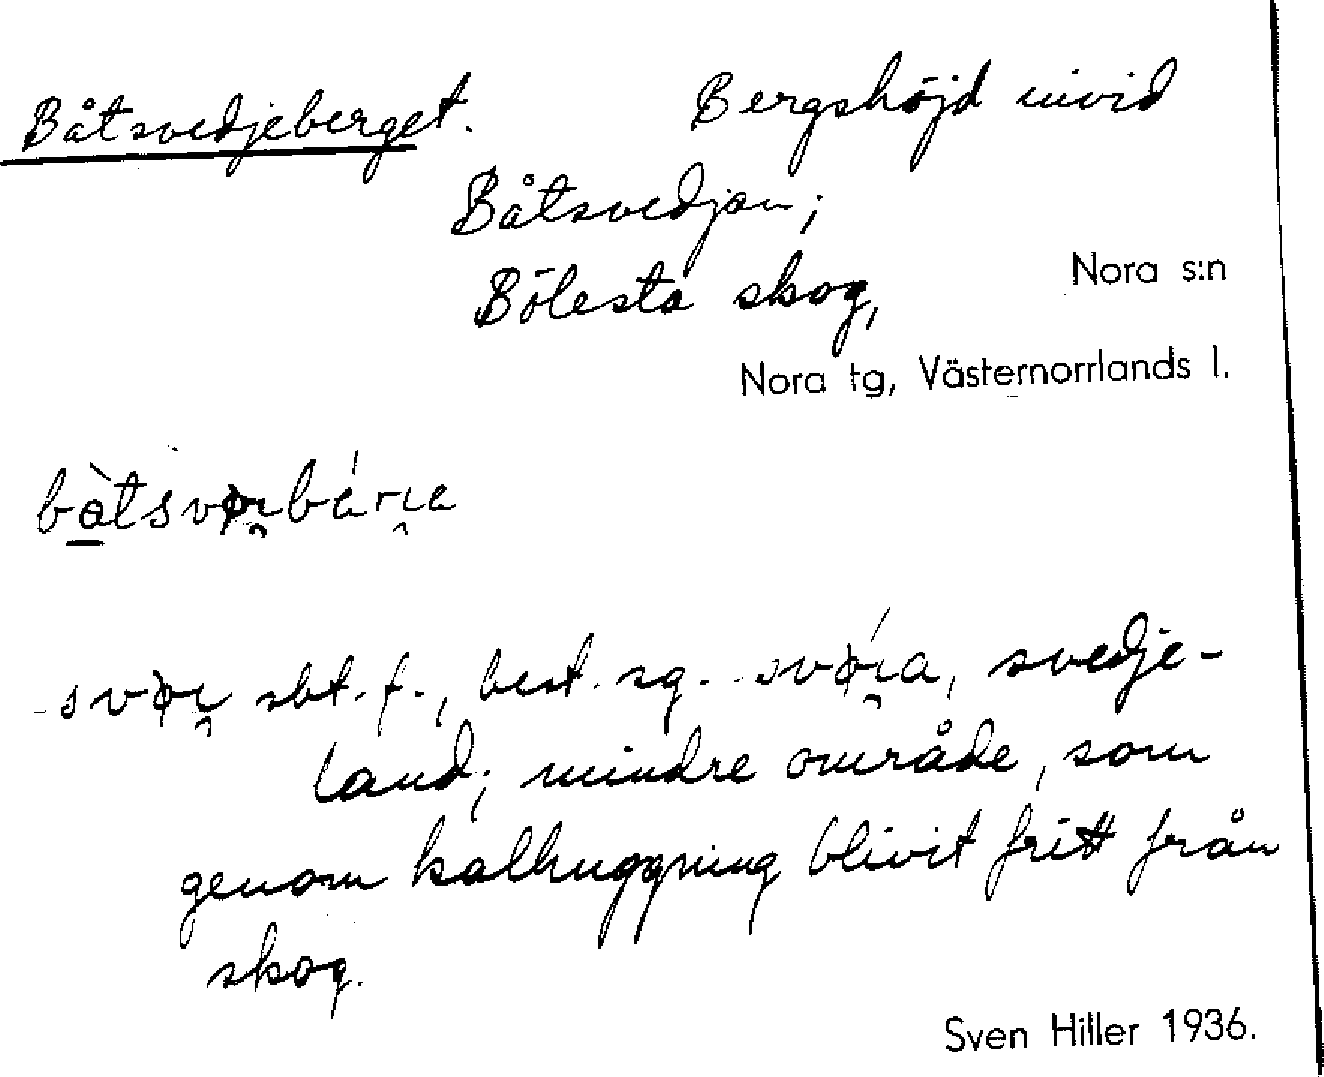 Båtsvedjeberget. Bergshöjd invid
Båtsvedjan;
Bölesta skog, Nora s:n
Nora tg, Västernorrlands l.
sbt. f., best. sg. svedje-
land; mindre område, som
genom kalhuggning blivit fritt från
skog.
Sven Hiller 1936.